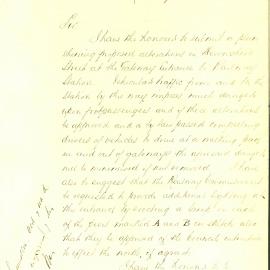 Sir
I have the honour to submit a plan
showing proposed alterations in Devonshire
Street at the Gateway entrance to Railway
Station. Vehicular traffic from and to the
Station by this way imposes much danger
upon foot passengers and if these alterations
be approved and a by law passed compelling
drivers of vehicles to drive at a walking pace
in and out of gateways the annoyance and danger
be minimised if not removed. I have
also to suggest that the Railway Commissioners
be requested to provide additional lighting at
the entrance by erecting a lamp on each
of the piers marked A and B on sketch also
that they be apprised of the Council's intention
to effect the works, if agreed.
I have the honour